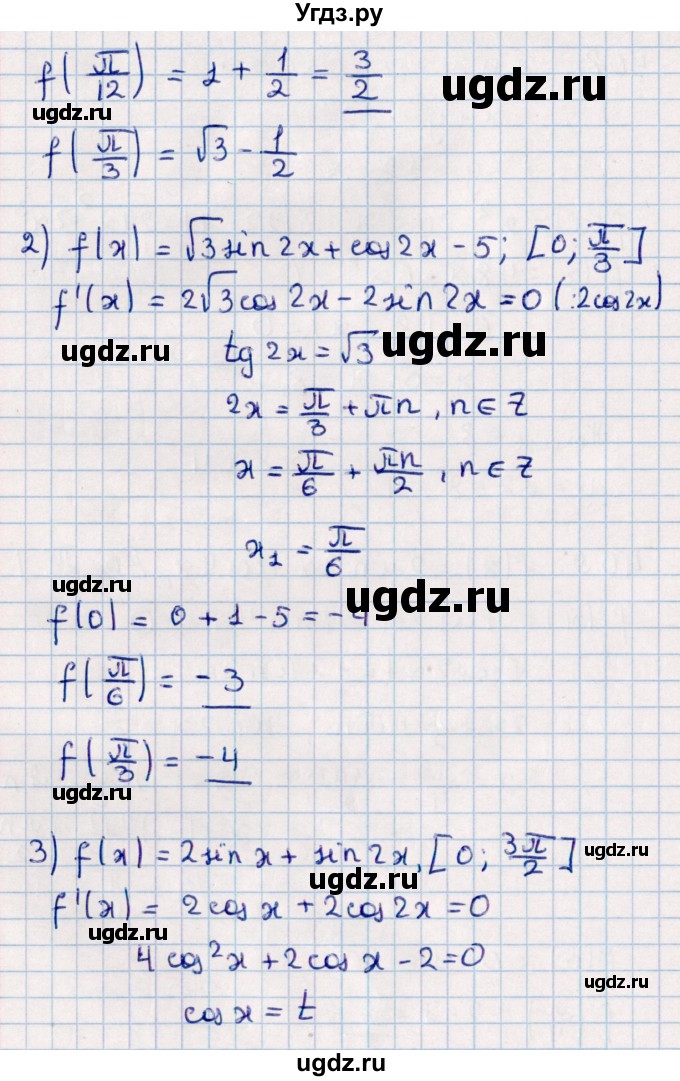 Угдз.ру
f(π/12) = 1 + 1/2 = 3/2
ugdz.ru
ugdz.ru
f(π/3) = √3 - 1/2
2) f(x) = √3 sin 2x + cos 2x - 5; [0; π/3]
f'(x) = 2√3 cos 2x - 2 sin 2x = 0 (:2cos2x)
ugdz.ru
tg 2x = √3
ugdz.ru
2x = π/3 + πn, n ∈ Z
x = π/6 + πn/2, n ∈ Z
x₁ = π/6
ugdz.ru
ugdz.ru
f(0) = 0 + 1 - 5 = -4
f(π/6) = -3
f(π/3) = -4
ugdz.ru
3) f(x) = 2 sin x + sin 2x, [0; 3π/2]
ugdz.ru
ugdz.ru
f'(x) = 2 cos x + 2 cos 2x = 0
ugdz.ru
4 cos²x + 2 cos x - 2 = 0
ugdz.ru
cos x = t
ugdz.ru